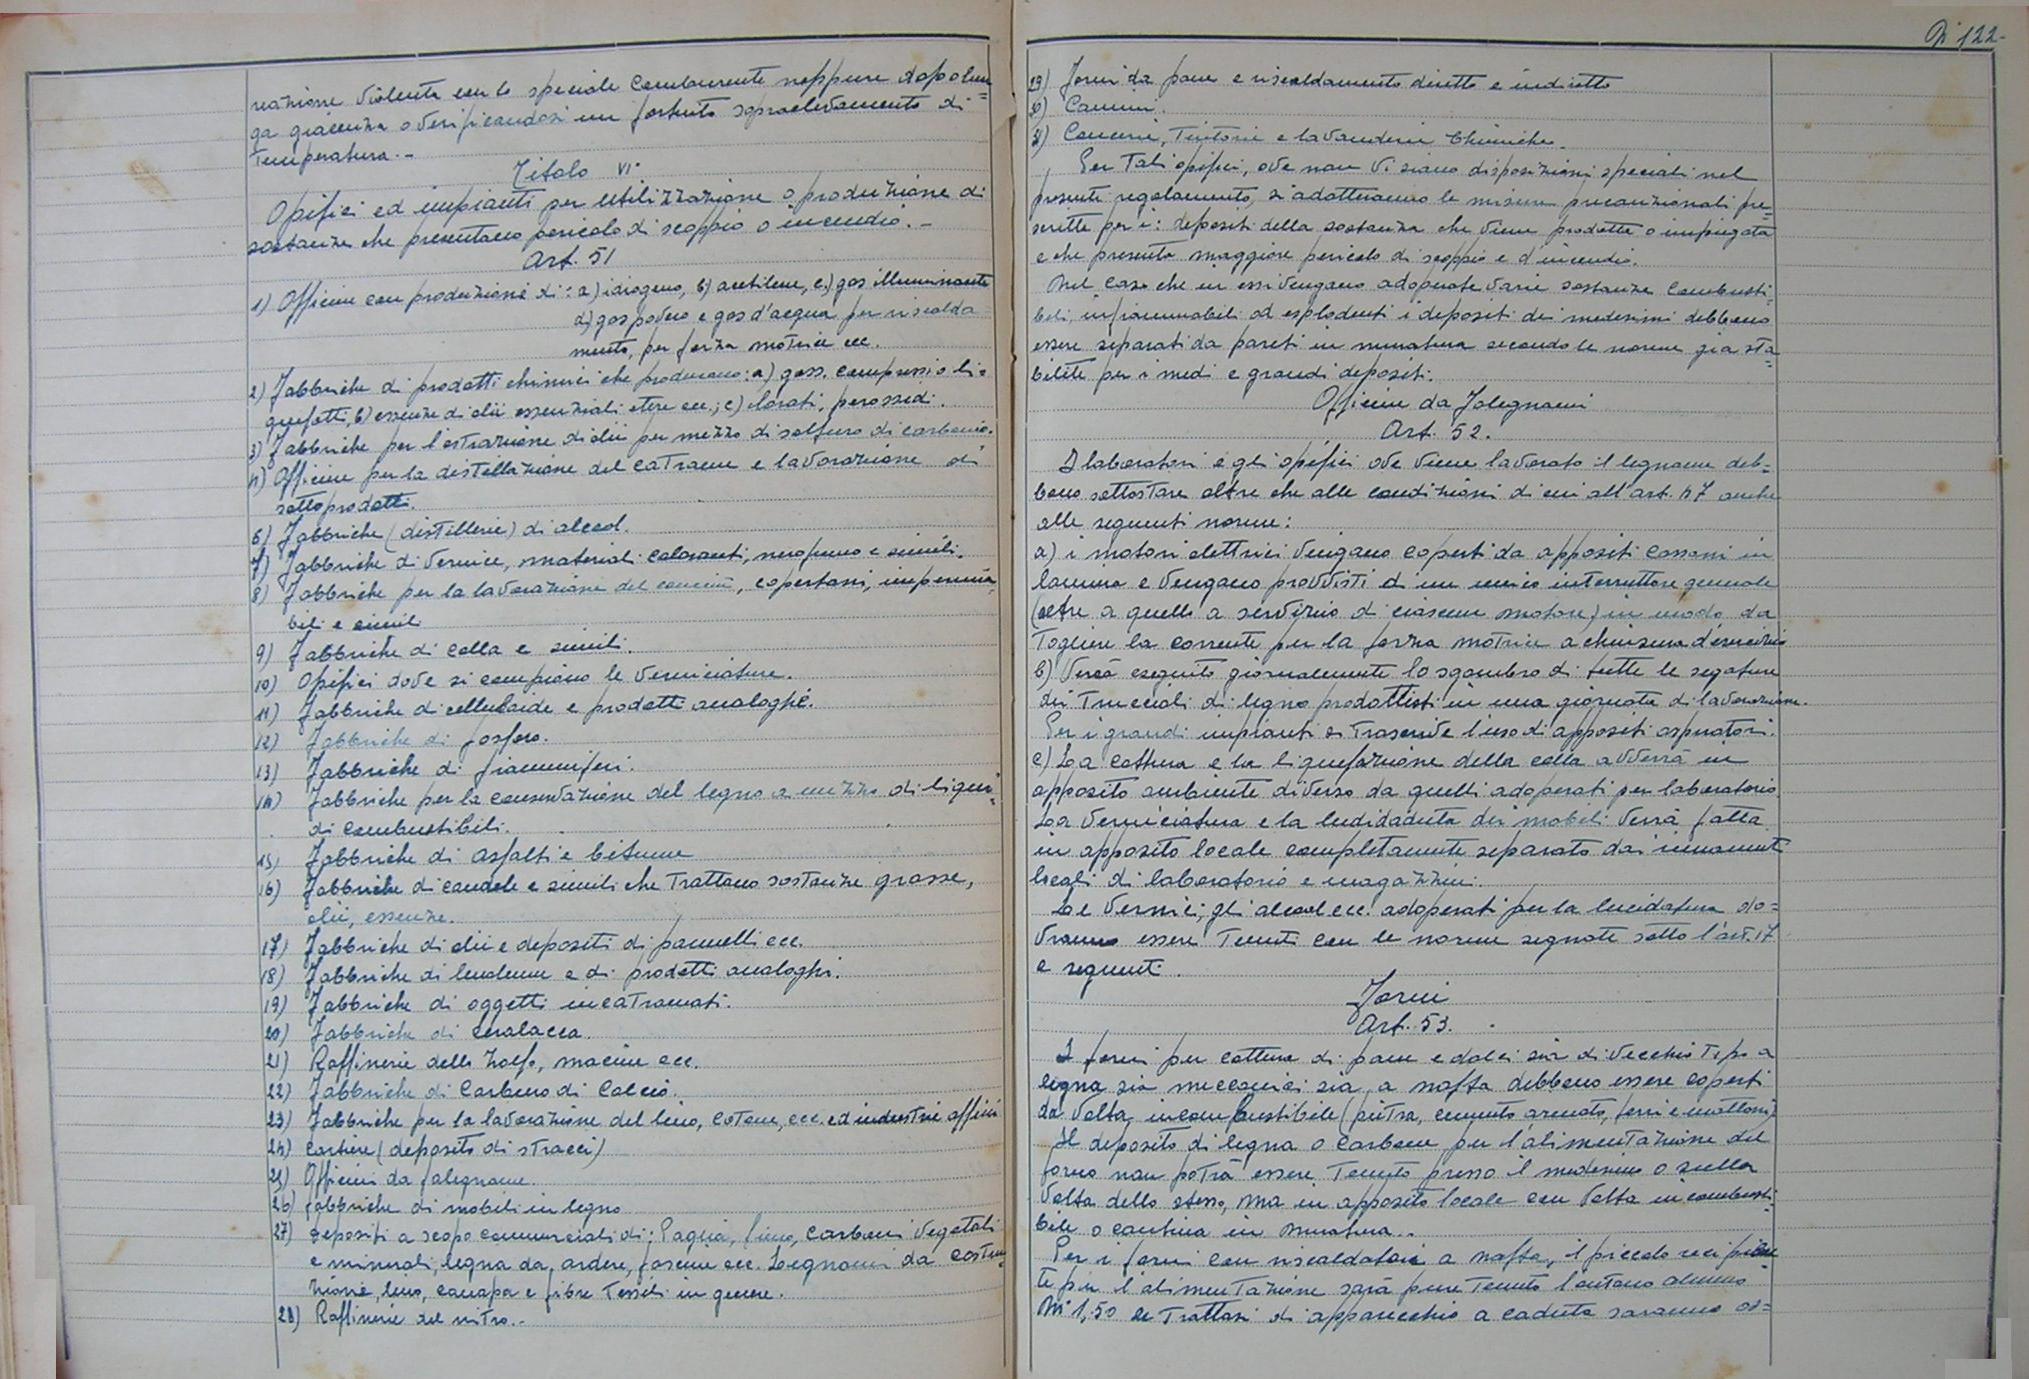 reazione violenta con lo speciale comburente neppure dopo lun=
ga giacenza o verificandosi un fortuito sopraelevamento di
temperatura.-
Titolo VI°
Opifici ed impianti per utilizzazione o produzione di
sostanze che presentano pericolo di scoppio o incendio.-
Art. 51
1) Officine con produzione di: a) idrogeno, b) acetilene, c) gas illuminante
d) gas povero e gas d'acqua per riscalda
mento, per forza motrice ecc.
2) Fabbriche di prodotti chimici che producano: a) gass. compressi o li=
quefatti, b) essenze di olii essenziali etere ecc.; c) clorati, perossidi.
3) Fabbriche per l'estrazione di olii per mezzo di solfuro di carbonio.
4) Officine per la distillazione del catrame e lavorazione di
sottoprodotti.
6) Fabbriche (distillerie) di alcool.
7) Fabbriche di vernice, materiali coloranti, nerofumo e simili.
8) Fabbriche per la lavorazione del , copertoni, impermia
bili e simili
9) Fabbriche di colla e simili.
10) Opifici dove si compiono le verniciature.
11) Fabbriche di celluloide e prodotti analoghi.
12) Fabbriche di fosforo.
13) Fabbriche di fiammiferi.
14) Fabbriche per la conservazione del legno a mezzo di liqui=
di combustibili.
15) Fabbriche di asfalti e bitume
16) Fabbriche di candele e simili che trattano sostanze grasse,
olii, essenze.
17) Fabbriche di olii e depositi di pannelli ecc.
18) Fabbriche di linoleum e di prodotti analoghi.
19) Fabbriche di oggetti incatramati.
20) Fabbriche di ceralacca.
21) Raffinerie dello zolfo, macine ecc.
22) Fabbriche di Carburo di Calcio.
23) Fabbriche per la lavorazione del lino, cotone, ecc. ed industrie affini
24) Cartiere (deposito di stracci)
25) Officini da falegname.
26) Fabbriche di mobili in legno
27) Depositi a scopo commerciali di: Paglia, fieno, carboni vegetali
e minerali, legna da ardere, fascine ecc. Legnami da costru=
zione, lino, canapa e fibre tessili in genere.
28) Raffinerie del nitro.-
N° 122-
29) Forni da pane e riscaldamento diretto e indiretto
30) Camini.
31) Concerie, Tintorie e lavanderie chimiche.
Per tali opifici, ove non vi siano disposizioni speciali nel
presente regolamento, si adotteranno le misure precauzionali pre=
scritte per i: depositi della sostanza che viene prodotta o impiegata
e che presenta maggiore pericolo di scoppio e d'incendio.
Nel caso che in essi vengano adoperate varie sostanze combusti=
bili, infiammabili od esplodenti i depositi dei medesimi debbono
essere separati da pareti in muratura secondo le norme gia sta=
bilite per i medi e grandi depositi.
Officine da Falegnami
Art. 52.
I laboratori e gli opifici ove viene lavorato il legname deb=
bono sottostare oltre che alle condizioni di cui all'art. 47 anche
alle seguenti norme:
a) i motori elettrici vengano coperti da appositi cassoni in
lamiera e vengano provvisti di un unico interruttore generale
(oltre a quello a servizio di ciascun motore) in modo da
togliere la corrente per la forza motrice a chiusura d'esercizio
b) Verrà eseguito giornalmente lo sgombro di tutte le segature
dei truccioli di legno prodottisi in una giornata di lavorazione.
Per i grandi impianti si trascrive l'uso di appositi aspiratori.
c) La cottura e la liquefazione della colla avverrà in
apposito ambiente diverso da quelli adoperati per laboratorio.
La verniciatura e la ludidaduta dei mobili verrà fatta
in apposito locale completamente separato dai rimanenti
locali di laboratorio e magazzini.
Le vernici, gli alcool ecc. adoperati per la lucidatura do=
vranno essere tenuti con le norme segnate sotto l'art. 17
e seguenti.
Forni
Art. 53.
I forni per cottura di pane e dolci sia di vecchio tipo a
legna sia meccanici sia a nafta debbono essere coperti
da volta incombustibile (pietra, cemento armato, ferri e mattoni)
Il deposito di legna o carbone per l'alimentazione del
forno non potrà essere tenuto presso il medesimo o sulla
volta dello stesso, ma in apposito locale con volta incombusti=
bile o cantina in muratura.-
Per i forni con riscaldatori a nafta, il piccolo recipien=
te per l'alimentazione sarà pure tenuto lontano almeno
M 1,50 se trattasi di apparecchio a caduta saranno os=